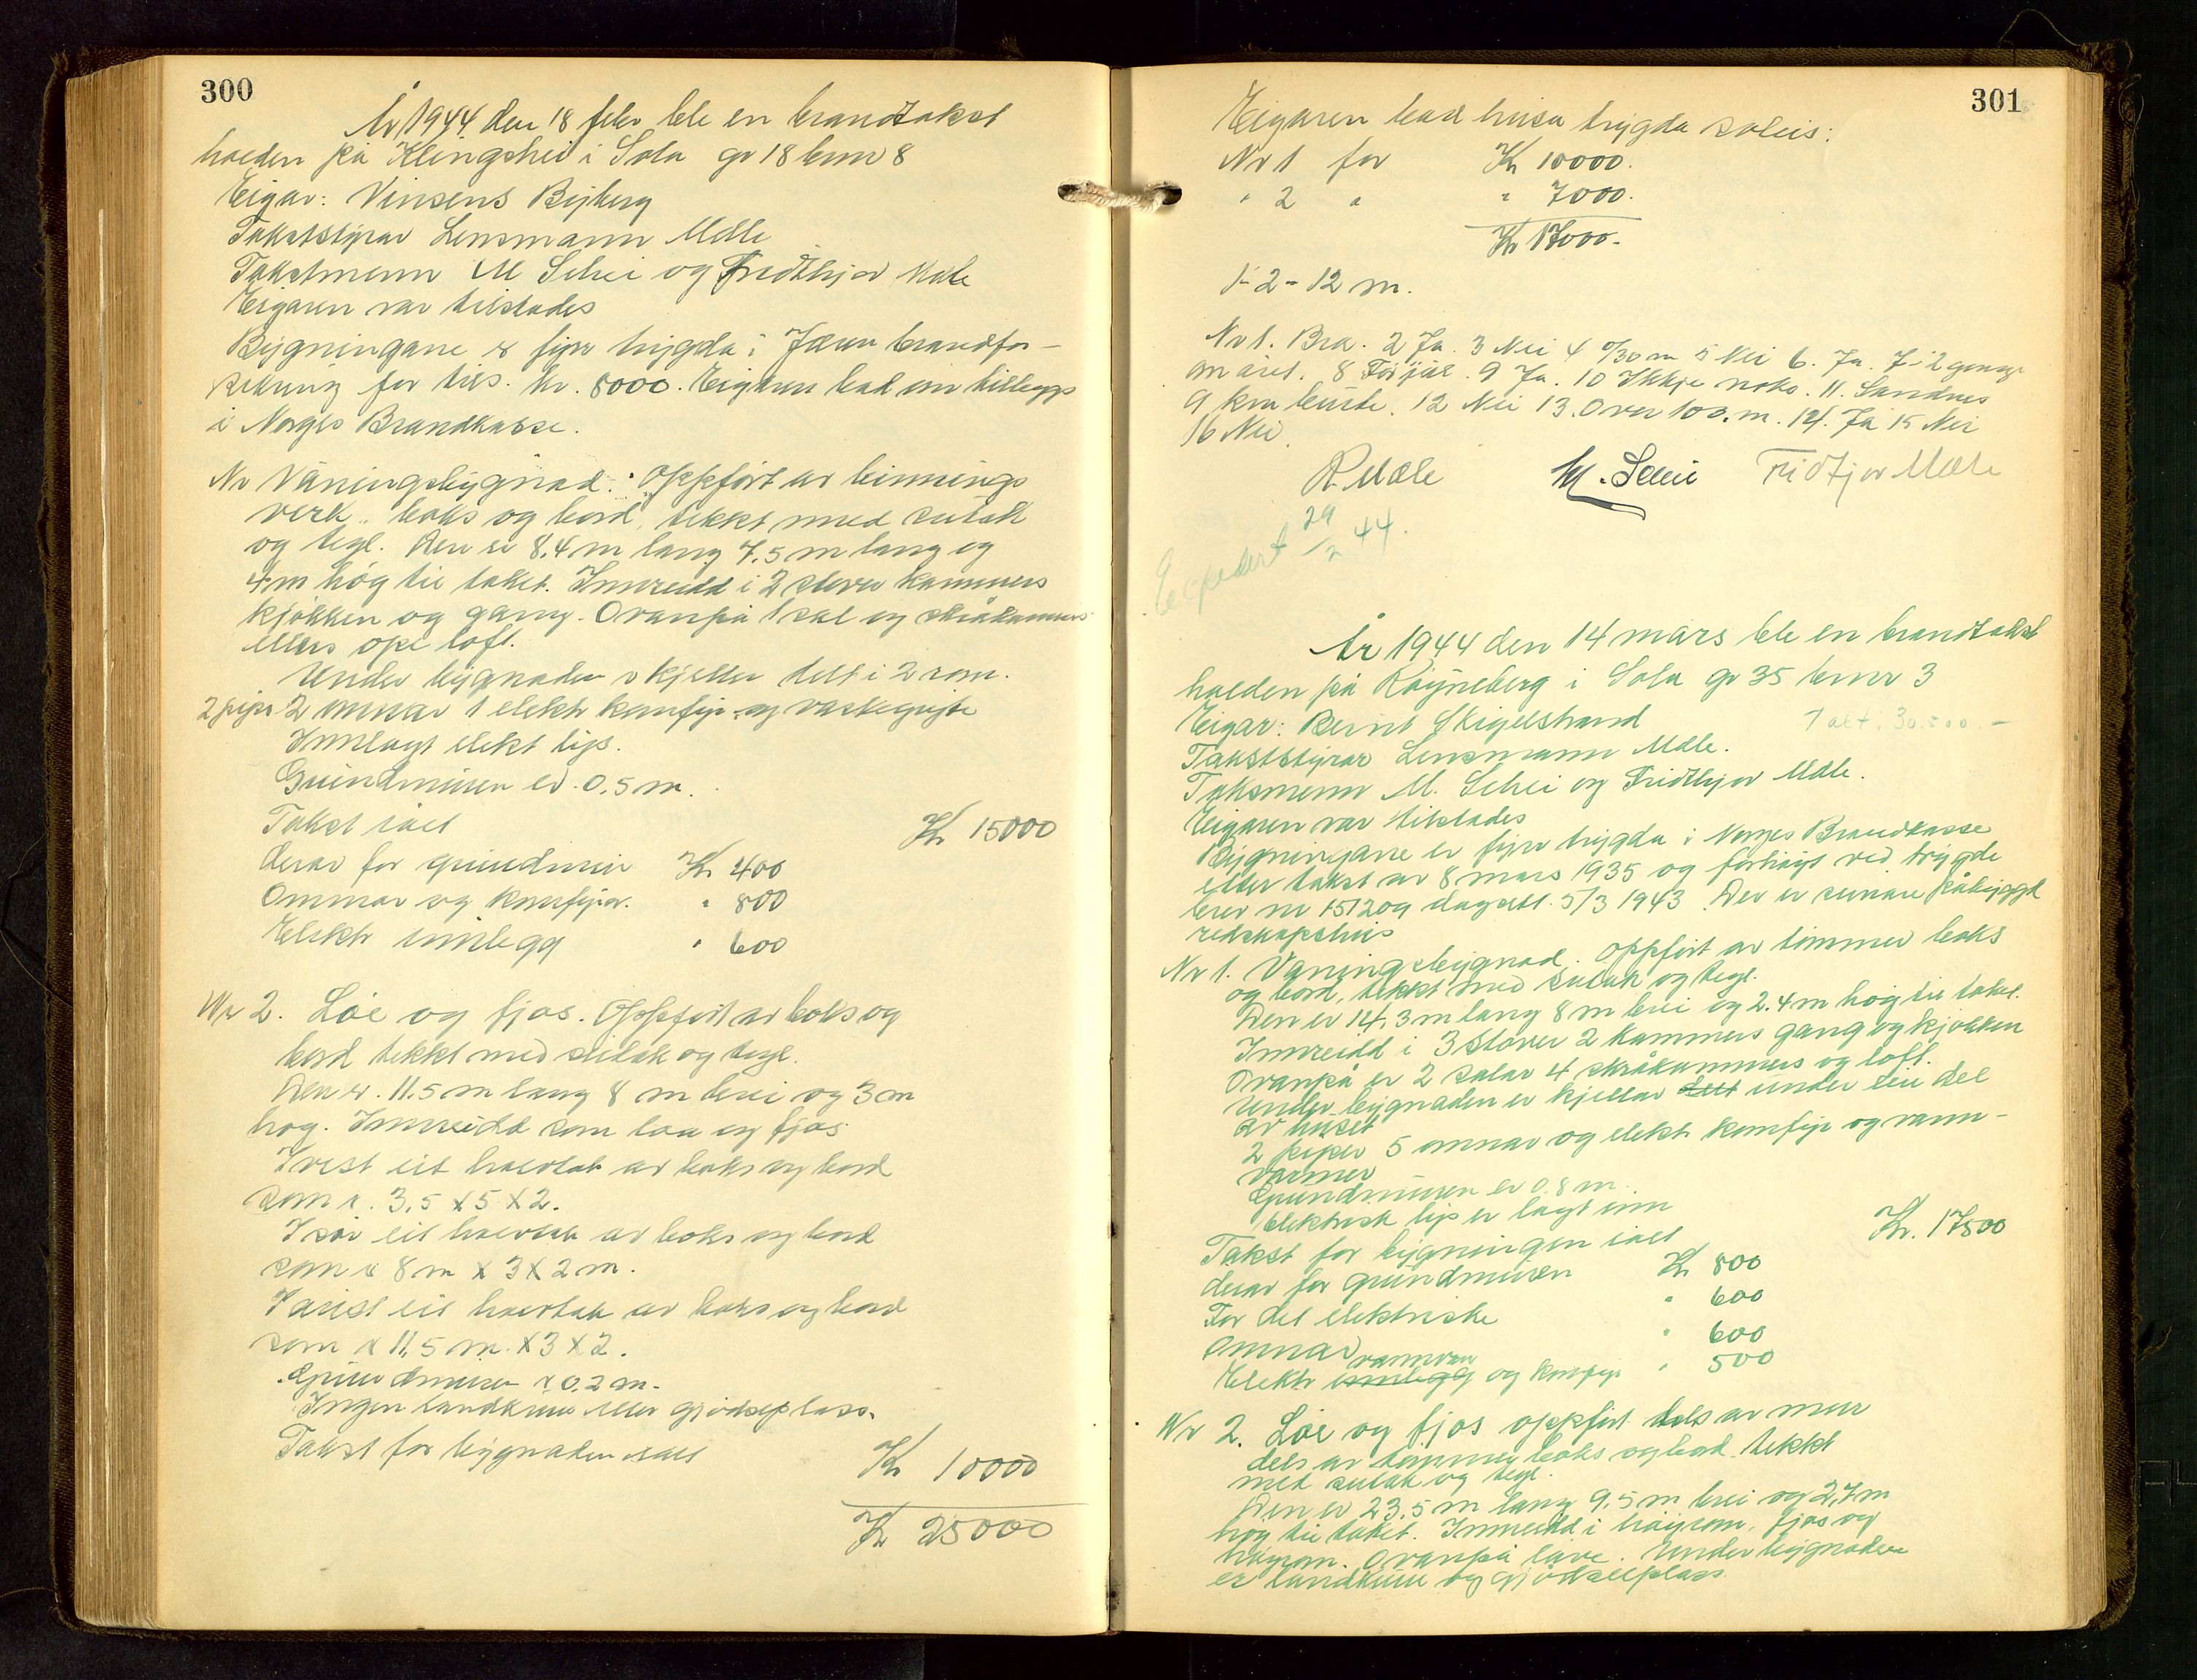 300
År 1944 den 18 febr ble en brandtakst
halden på Klingshei i Sola gr 18 bnr 8
Eigar: Vinsens Byberg
Takststyrar Lensmann Mæle
Takstmenn M Schei og Fridthjov Mæle
Eigaren var tilstades
Bygningane er fyrr trygda i Jæren brandfor-
sikring for tils. kr. 8000. Eigaren bad om tillegg
i Norges Brandkasse.
Nr Våningsbygnad. Oppfört av binnings
verk, boks og bord, tekkt med sutak
og tegl. Den er 8.4 m lang 7.5 m lang og
4 m hög til taket. Innreidd i 2 stover kammers
kjökken og gang. Ovanpå 1 sal og skråkammers
ellers ope loft.
Under bygnaden er kjeller delt i 2 rom.
2 piper 2 omnar 1 elektr komfyr og vaskegryte
Innlagt elekt lys.
Grundmuren er 0.5 m.
Takst ialt Kr 15000
derav for grundmur Kr 400
Omnar og komfyrar " 800
Elektr innlegg " 600
Nr 2. Löe og fjos. Oppfört av boks og
bord tekkt med sutak og tegl.
Den er 11.5 m lang 8 m brei og 3 m
hög. Innreidd som löa og fjos
I vest eit halvtak av boks og bord
som er 3,5 x 5 x 2.
I sör eit halvtak av boks og bord
som er 8 m x 3 x 2 m.
I aust eit halvtak av boks og bord
som er 11,5 m x 3 x 2.
Grundmuren er 0,2 m.
Ingen landkum eller gjödselplass.
Takst for bygnaden ialt
Kr 10000
Kr 25000
301
Eigaren bad husa trygda soleis:
Nr 1 for Kr 10000.
" 2 " " 7000.
Kr 17000.
1 - 2 - 12 m.
Nr 1. Bra. 2 Ja. 3 Nei 4 0/30 m 5 Nei 6. Ja. 7 - 2 gonger
om året. 8 Forfjær. 9 Ja. 10 Ikkje noko. 11. Sandnes
9 km burte. 12 Nei 13. Over 100. m. 14. Ja 15 Nei
16 Nei.
R Mæle M. Schei Fridtjov Mæle
Ekspedert 29/2 44.
År 1944 den 14 mars ble en brandtakst
halden på Röyneberg i Sola gr 35 bnr 3
Eigar: Bernt Skjelstrand
Takst: 30.500.-
Takststyrar Lensmann Mæle.
Taksmenn M. Schei og Fridthjov Mæle.
Eigaren var tilstades
Bygningane er fyrr trygda i Norges Brandkasse
etter takst av 8 mars 1935 og forhöyt ved trygde
brev nr 151209 dagsett. 5/3 1943. Der er seinare påbyggt
redskapshus
Nr 1. Våningsbygnad. Oppfört av tömmer boks
og bord, tekkt med sutak og tegl.
Den er 14,3 m lang 8 m brei og 2.4 m hög til taket.
Innreidd i 3 stover 2 kammers gang og kjökken
Ovanpå er 2 salar 4 skråkammers og loft.
Under bygnaden er kjellar delt under ein del
av huset
2 piper 5 omnar og elektr komfyr og vann-
varmer
Grundmuren er 0.8 m.
Elektrisk lys er lagt inn
Takst for bygningen ialt Kr. 17500
derav for grundmuren Kr 800
For det elektriske " 600
Omnar " 600
vannvar
Elektr innlegg og komfyr " 500
Nr 2. Löe og fjos oppfört dels av mur
dels av tömmer boks og bord. tekkt
med sutak og tegl.
Den er 23,5 m lang 9.5 m brei og 2,7 m
hög til taket. Innreidd i höyrom, fjos og
höyrom. Ovanpå låve. Under bygnaden
er landkum og gjödselplass.